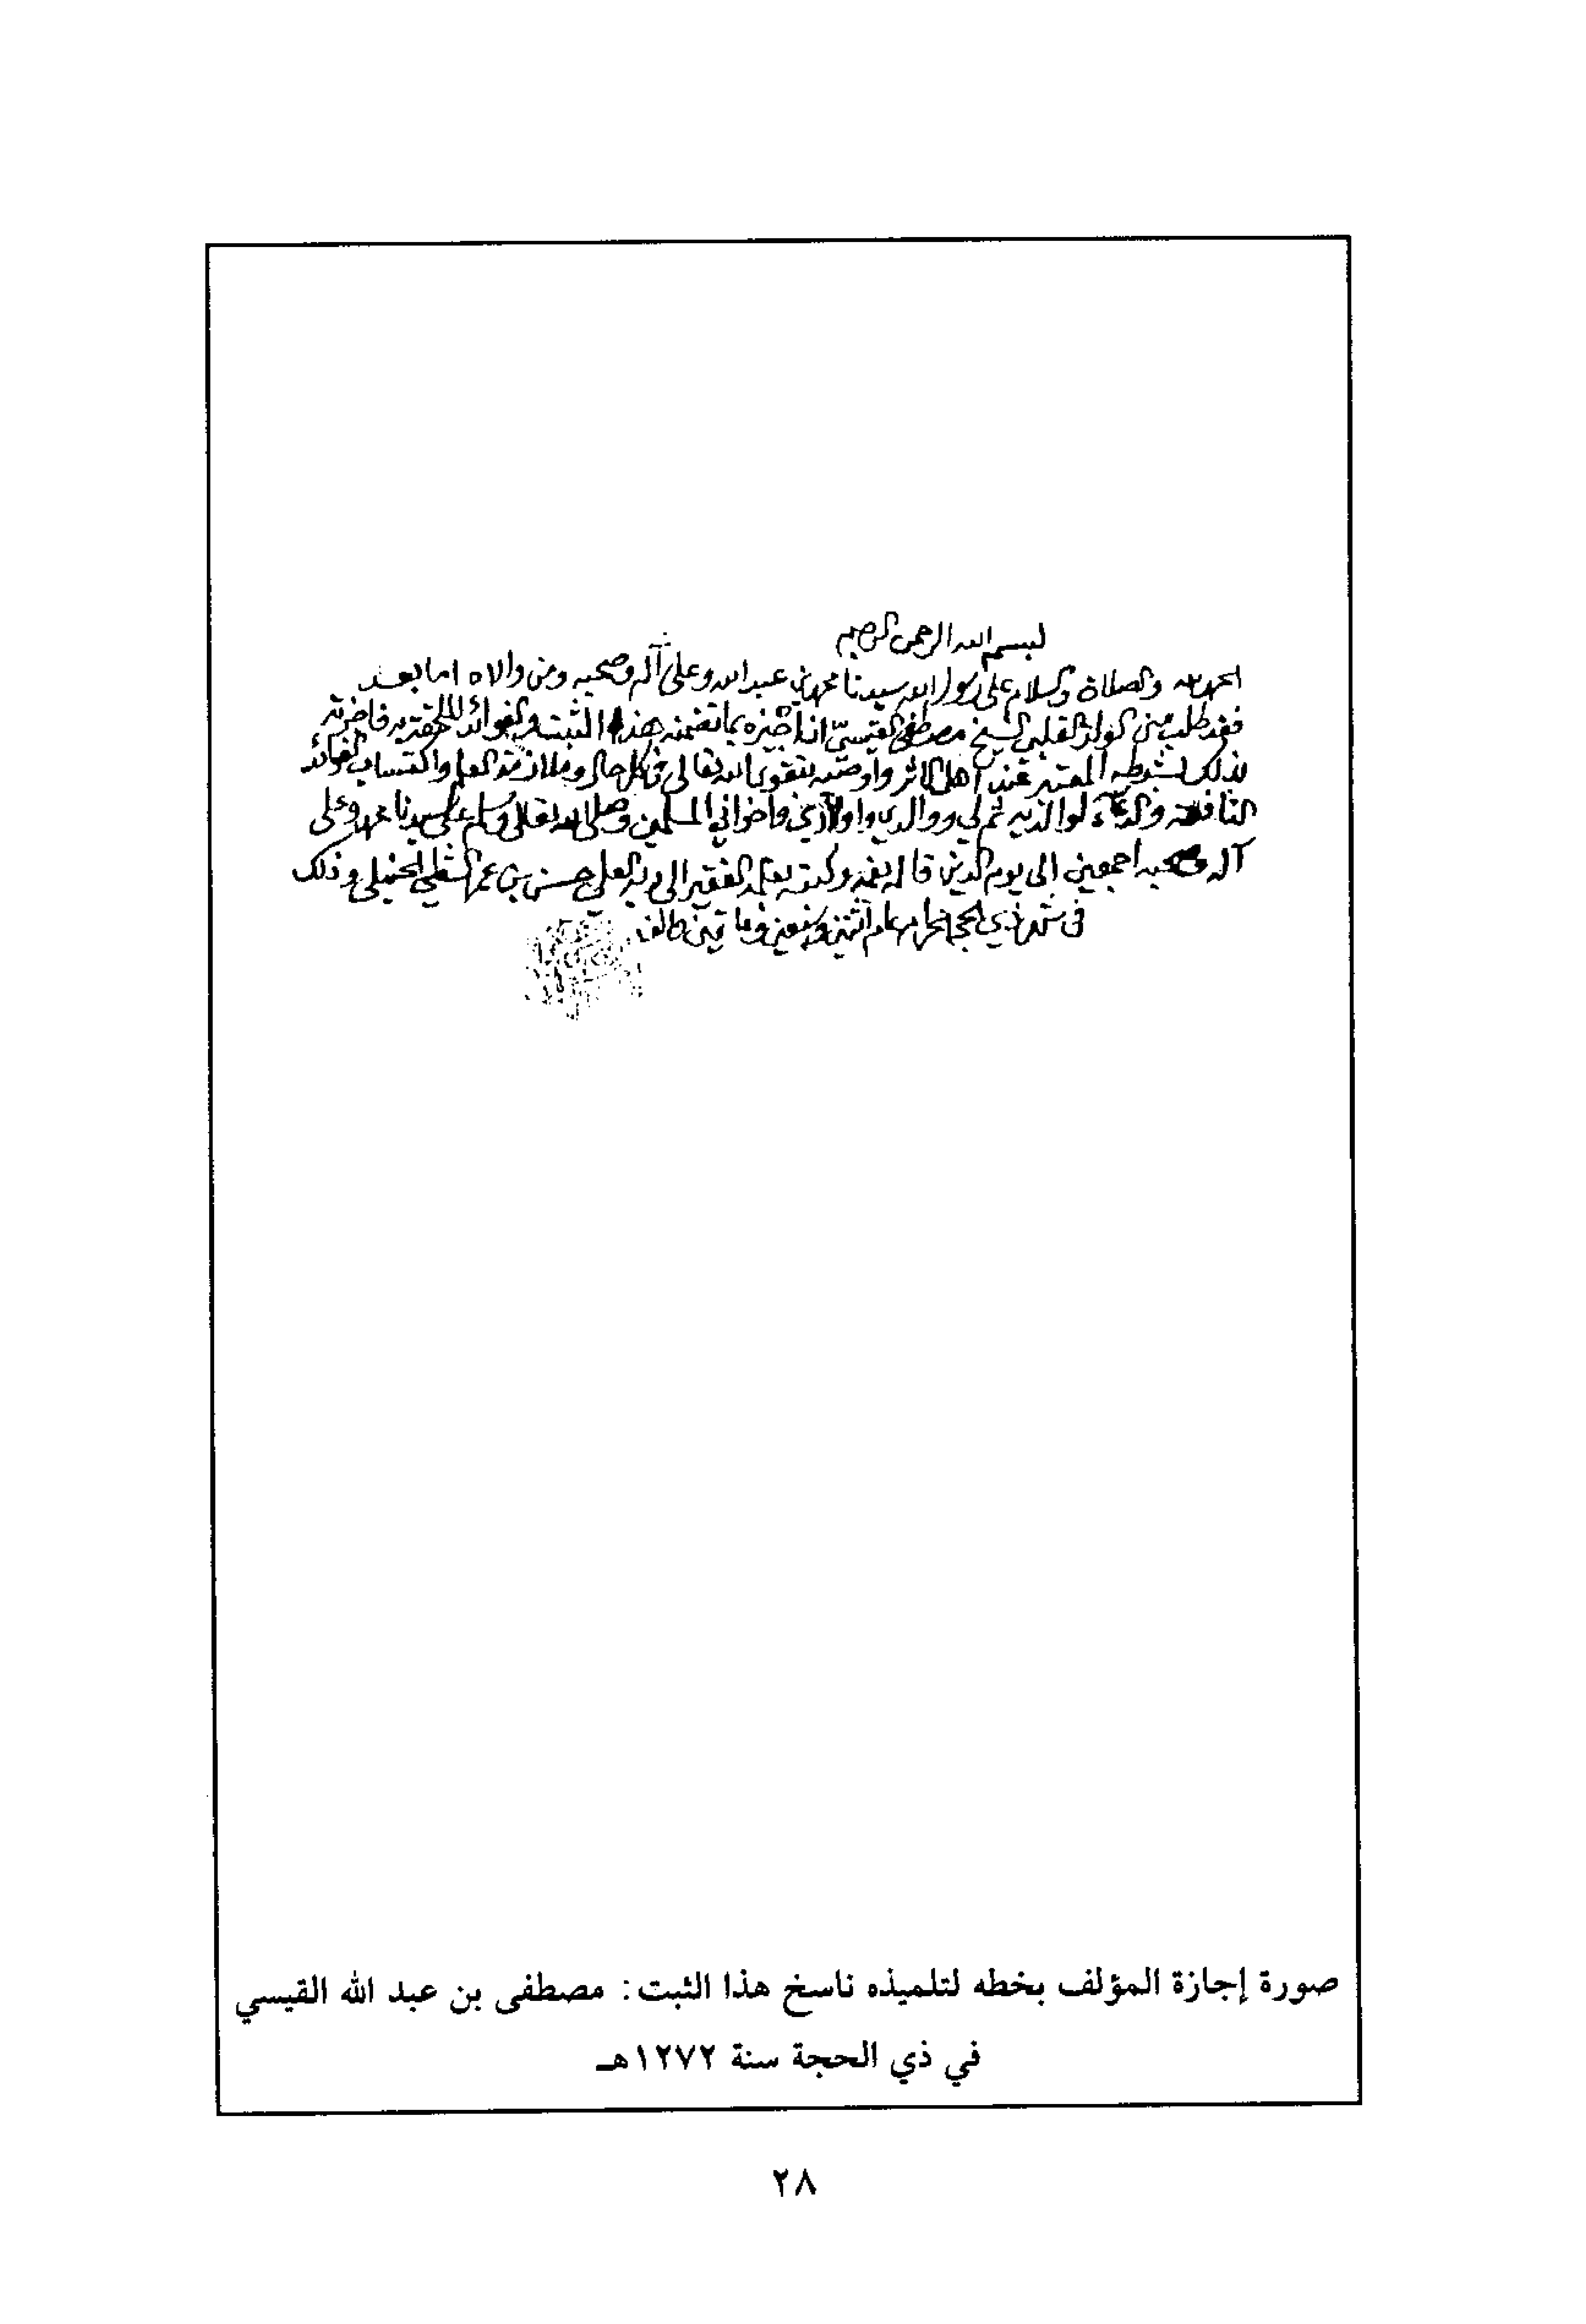 بسم الله الرحمن الرحيم
الحمد لله والصلاة والسلام على رسول الله سيدنا محمد بن عبد الله وعلى آله وصحبه ومن والاه اما بعد
فقد طلب مني الولد القلبي الشيخ مصطفى القيسي ان اجيزه بما تضمنه هذا الثبت والفوائد الملحقة به فاجزته
بذلك بشرطه المعتبر عند اهل الاثر واوصيه بتقوى الله تعالى في كل حال وملازمة العلم واكتساب الفوائد
النافعة والدعاء لوالديه ثم لي ووالدي واولادي واخواني المسلمين وصلى الله تعالى وسلم على سيدنا محمد وعلى
آله وصحبه اجمعين الى يوم الدين قاله بفمه وكتبه بقلمه الفقير الى ربه العلي حسن بن عمر الشطي الحنبلي وذلك
في شهر ذي الحجة الحرام عام اثنين وسبعين ومايتين والف
صورة إجازة المؤلف بخطه لتلميذه ناسخ هذا الثبت: مصطفى بن عبد الله القيسي
في ذي الحجة سنة ١٢٧٢هـ
٢٨